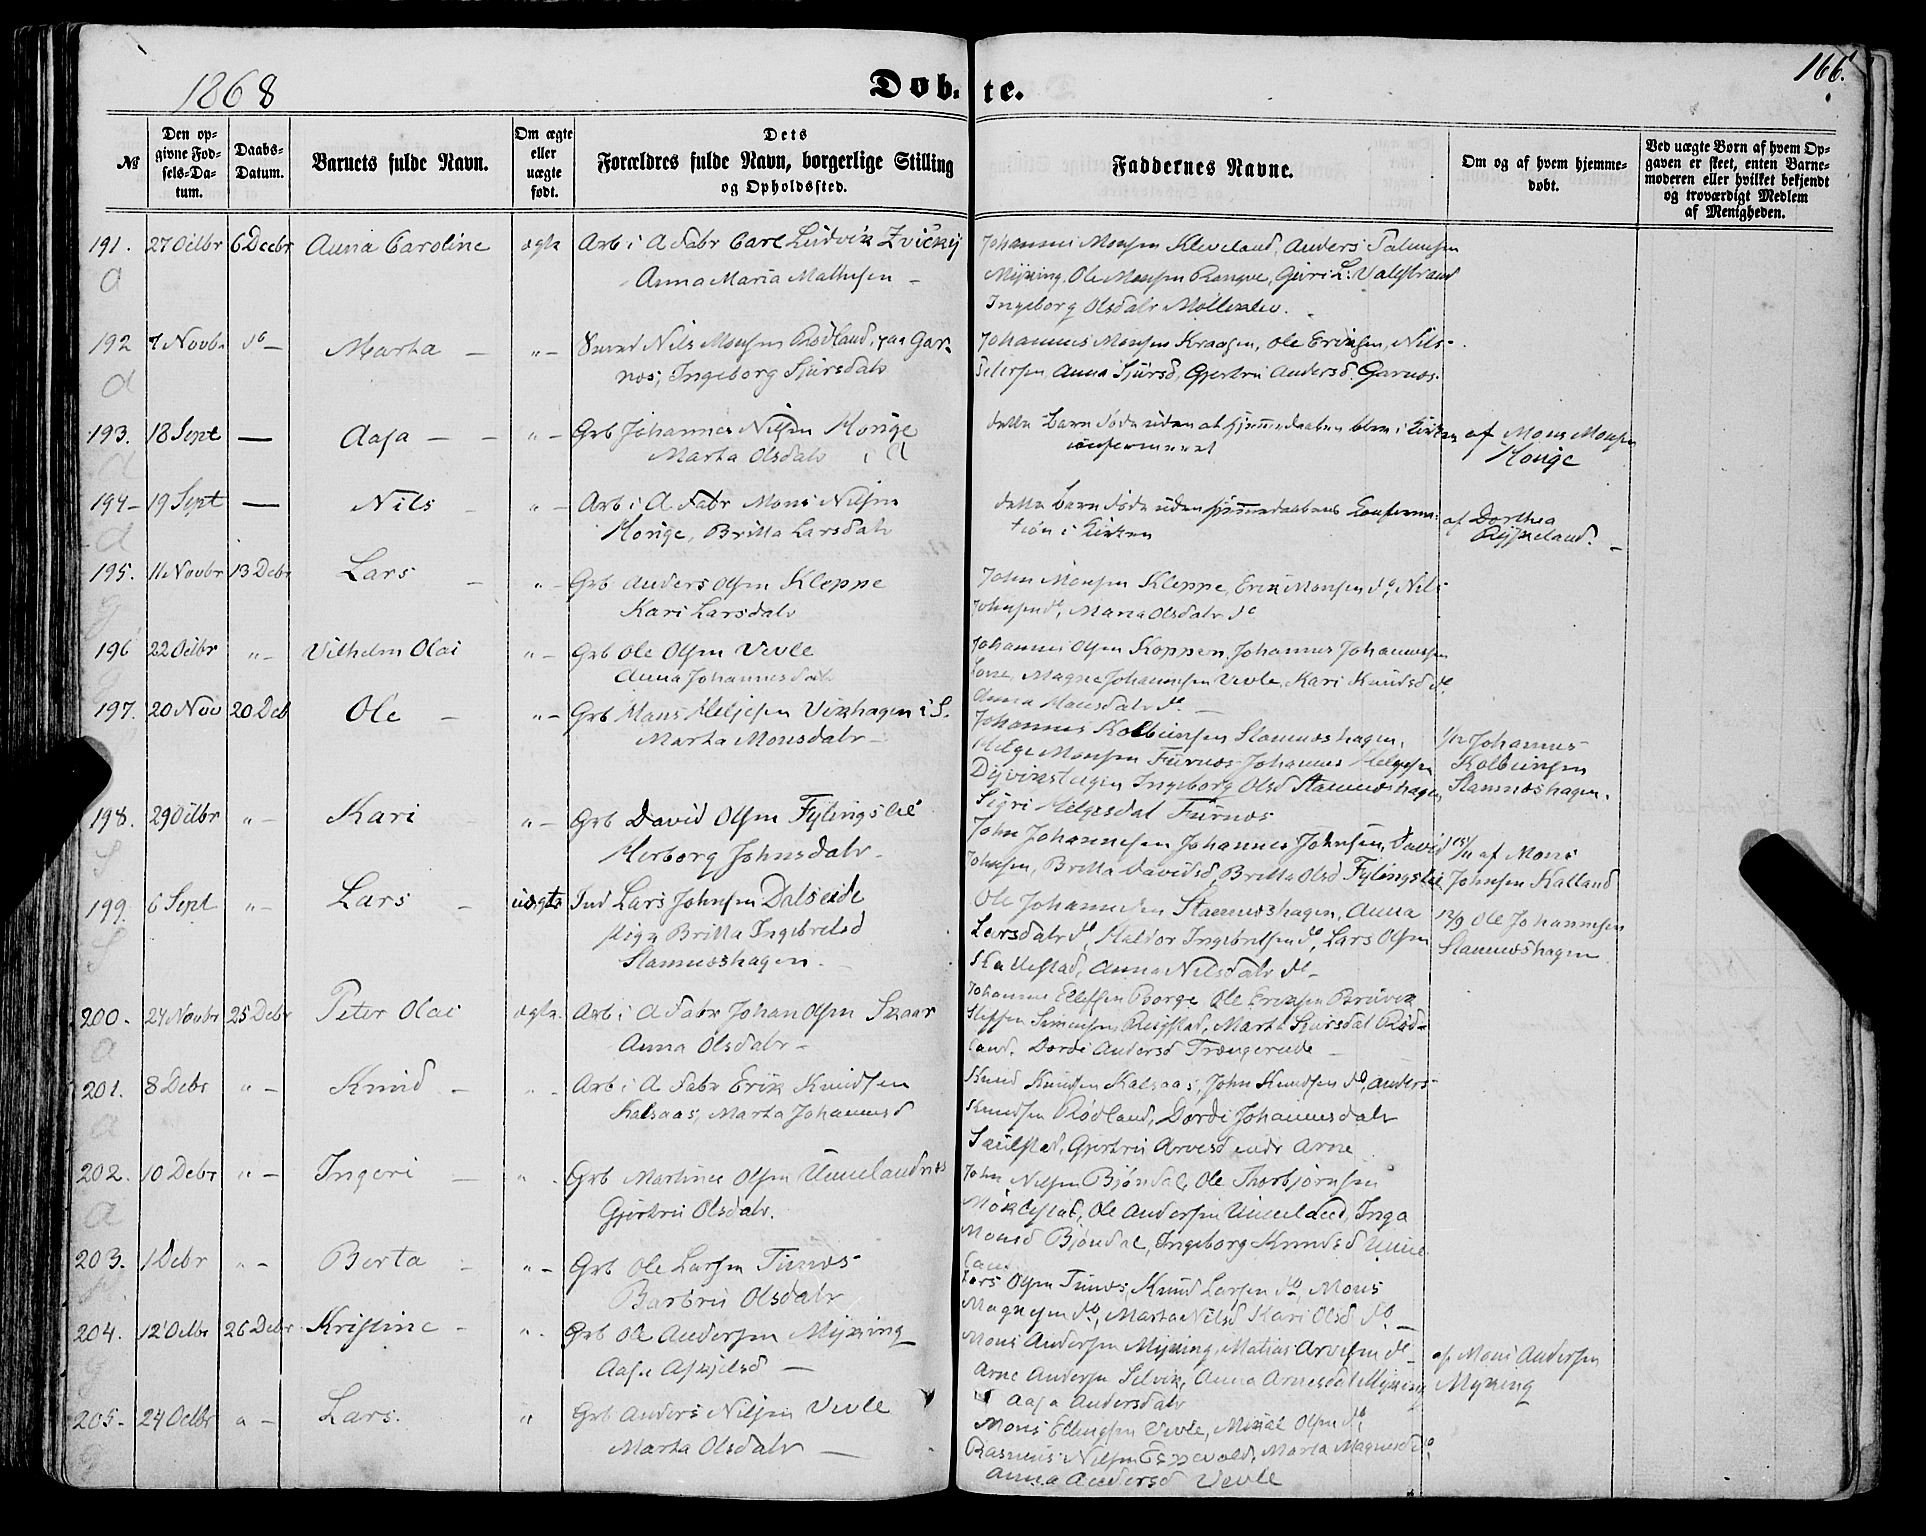 1868
Døb-te.
166.
№
Den op-
givne Fød-
sels-Da-
tum.
Daabs-
Datum.
Barnets fulde Navn.
Om ægte
eller
uægte
født.
Dets
Forældres fulde Navn, borgerlige Stilling
og Opholdssted.
Faddernes Navne.
Om og af hvem hjemme-
døbt.
Ved uægte Børn af hvem Op-
gaven er skeet, enten Barne-
moderen eller hvilket bekjendt
og troværdigt Medlem
af Menigheden.
191. 27 Octbr 6 Decbr Anna Caroline ægte Arb i A Fabr Carl Ludvik Zvicky
a
Anna Maria Mathisen -
Johannes Monsen Kleveland, Anders
Mjøning, Ole Monsen
Ingeborg Olsdatr
192 7 Novbr Marta - "- Nils Monsen Rødland, paa Gar-
a
nes, Ingeborg Sjursdatr
Johannes Monsen Kraagen, Ole Eriksen, Nils
Anna Sjursd, Gjertru Andersd. Garnæs.
193. 18 Sept — Aasa - - "- Grb Johannes Nilsen Horige
a
Marta Olsdatr
dette Barn døde uden at hjemmedaaben blev i Kirken
confirmeret
af Mons Monsen
Horige
194- 19 Sept — Nils - "- Arb i A Fabr Mons Nilsen
a
Horige, Britta Larsdatr
dette Barn døde uden hjemmedaabens Confirma-
tion i Kirken
af Dorthea
195. 11 Novbr 13 Debr Lars - "- Grb Anders Olsen Kleppe
g
Kari Larsdatr
John Monsen Kleppe, Erik Monsen do, Nils
Johnsen do, Maria Olsdatr do
196 22 Octbr "- Vilhelm Olai "- Grb Ole Olsen Vevle
g
Anna Johannesdatr
Johannes Olsen Koppen, Johannes Johannessen
Magne Johannesen Vevle, Kari Knudsd do.
Anna Hansdatr do
197. 20 Nov 20 Deb Ole - "- Grb Hans Helgesen Vikhagen i S.
Marta Monsdatr -
Johannes Kolbeinsen Stamneshagen,
Helge Monsen Furnes Johannes Helgesen
Ingeborg Olsd Stamneshagen
Sigri Helgesdat Furnes
1/12 Johannes
Kolbeinsen
Stamneshagen.
198. 29 Octbr "- Kari "- Grb David Olsen Fylingslid
S
Herborg Johnsdatr -
John Johannesen Johannes Johnsen, David
Johnsen, Britta Davidsd, Britta Olsd Fylingslid
15/11 af Mons
Johnsen Kalland
199. 6 Sept "- Lars - uægte Ind Lars Johnsen Dalseide
S
Pige Britta Ingebretsd
Stamneshagen -
Ole Johannesen Stamneshagen, Anna
Larsdatr do, Haldor Ingebretsen do, Lars Olsen
Skallestad, Anna Nilsdatr do-
12/9 Ole Johannesen
Stamneshagen
200. 24 Novbr 25 Debr Peter Olai ægte. Arb i A Fabr Johan Olsen Skaar
a
Anna Olsdatr -
Johannes Ellefsen Borge Ole Eriksen Bruvik
Steffen Simensen Reigstad, Marta Sjursdat Rød-
land, Dordi Andersd Trengereide -
201. 8 Debr "- Knud - Arb i A Fabr Erik Knudsen
a
Kalsaas, Marta Johannesd
Knud Knudsen Kalsaas, John Knudsen do, Anders
Knudsen Rødland, Dordi Johannesdatr
Gjertru Arvesd Arne
202. 10 Debr "- Ingeri - "- Grb Martinus Olsen Unnelandnes
a
Gjertru Olsdatr.
John Nilsen Bjøndal, Ole Thorbjørnsen
Møklestad, Ole Andersen Unneland, Inga
Monsd Bjøndal, Ingeborg Knudsd Unne
land
203. 1 Debr "- Berta - "- Grb Ole Larsen Tunes
Barbru Olsdatr
Lars Olsen Tunes, Knud Larsen do, Mons
Magnesen do, Marta Nilsd Kari Olsd do
204. 12 Octbr 26 Debr Kristine - "- Grb Ole Andersen Mjøning
g
Aasa Askjelsd -
Mons Andersen Mjøning, Matias Arvesen do
Arne Andersen Selvik, Anna Arnesdat Mjøning
Aasa Andersdatr
af Mons Andersen
Mjøning
205- 24 Octbr "- Lars. " Grb Anders Nilsen Vevle
g
Marta Olsdatr -
Mons Ellingsen Vevle, Mikal Olsen do
Rasmus Nilsen Espevold, Marta Magnesd do,
Anna Andersd Vevle